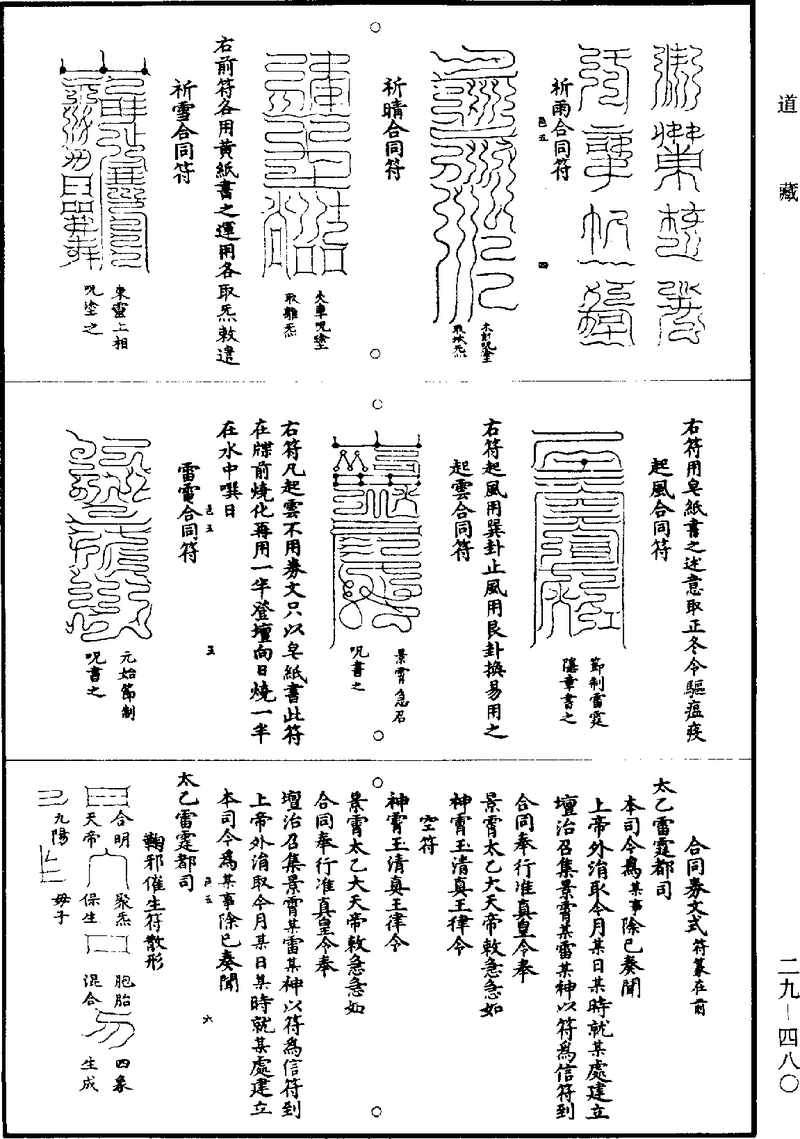 道藏
祈雨合同符
色五
四
木郎呪塗
取坎炁
祈晴合同符
火車呪塗
取離炁
右前符各用黃紙書之運用各取炁敕遣
祈雪合同符
東靈上相
呪塗之
右符用皂紙書之述意取正冬令驅瘟疫
起風合同符
節制雷霆
隱章書之
右符起風用巽卦止風用艮卦換易用之
起雲合同符
景霄急召
呪書之
右符凡起雲不用券文只以皂紙書此符
在牒前燒化再用一半登壇向日燒一半
在水中噀日
雷電合同符
色五
五
元始節制
呪書之
合同券文式符篆在前
太乙雷霆都司
本司今為某事除已奏聞
上帝外涓取今月某日某時就某處建立
壇治召集景霄某雷某神以符為信符到
合同奉行准真皇令奉
景霄太乙大天帝敕急急如
神霄玉清真王律令
空符
神霄玉清真王律令
景霄太乙大天帝敕急急如
合同奉行准真皇令奉
壇治召集景霄某雷某神以符為信符到
上帝外涓取今月某日某時就某處建立
本司今為某事除已奏聞
色五
六
太乙雷霆都司
鞫邪催生符散形
合明
天帝
聚炁
保生
胞胎
混合
四象
生成
九陽
母子
二九－四八〇